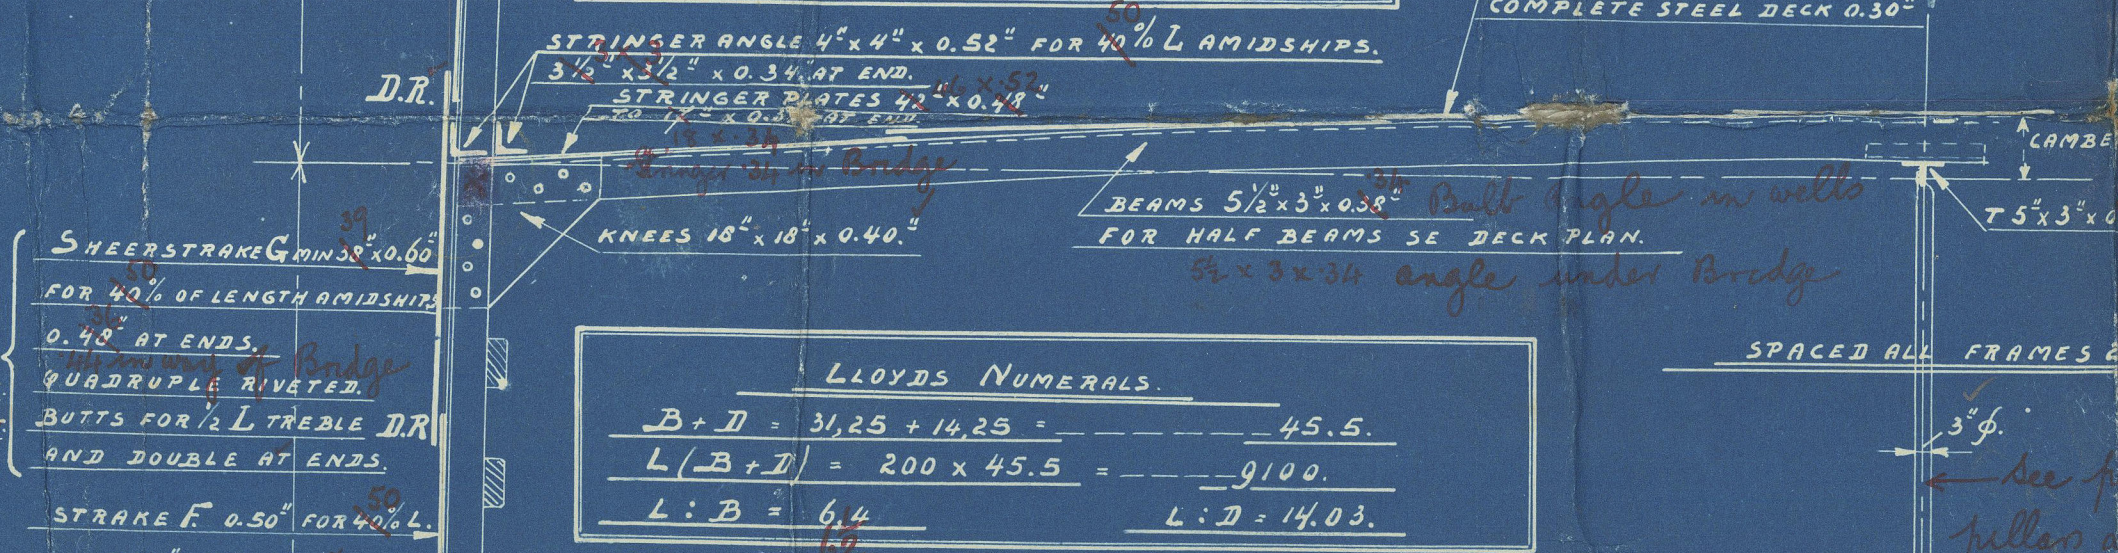 COMPLETE STEEL DECK 0.30"
50
STRINGER ANGLE 4"x 4"x 0.52" FOR 40% L AMIDSHIPS.
3 1/2" x 3 1/2" x 0.34" AT END.
D.R.
x .52
STRINGER PLATES 42" x 0.48"
AT END.
18 x .34
Stringer .34 in Bridge
CAMBE
.34
BEAMS 5 1/2" x 3" x 0.38" Bulb Angle in wells
FOR HALF BEAMS SE DECK PLAN.
5 1/2 x 3 x .34 angle under Bridge
T 5"x 3"x 0
KNEES 18" x 18" x 0.40."
39
SHEERSTRAKE G MIN 38" x 0.60"
50
FOR 40% OF LENGTH AMIDSHIPS
36
0.40" AT ENDS.
.44 in way of Bridge
QUADRUPLE RIVETED.
BUTTS FOR 1/2 L TREBLE D.R
AND DOUBLE AT ENDS.
50
STRAKE F. 0.50" FOR 40% L.
LLOYDS NUMERALS.
B + D = 31,25 + 14,25 = 45.5.
L (B + D) = 200 x 45.5 = 9100.
L : B = 6,14
L : D = 14.03.
SPACED ALL FRAMES
3" φ.
See
pillars